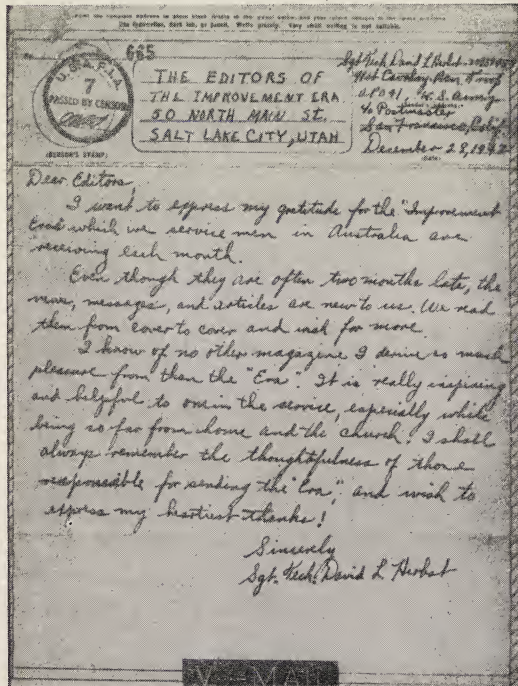 665
U.S.A.F.I.A.
7
PASSED BY CENSOR
(CENSOR'S STAMP)
THE EDITORS OF
THE IMPROVEMENT ERA
50 NORTH MAIN ST.
SALT LAKE CITY, UTAH
Sgt Tech David L Herbst
Cavalry Rcn Troop
U.S. Army
℅ Postmaster
San Francisco, Calif.
December 28, 1942
(DATE)
Dear Editors,
I want to express my gratitude for the "Improvement
Era" which we service men in Australia are
receiving each month.
Even though they are often two months late, the
news, messages, and articles are new to us. We read
them from cover to cover and wish for more.
I know of no other magazine I derive so much
pleasure from than the "Era". It is really inspiring
and helpful to one in the service, especially while
being so far from home and the church. I shall
always remember the thoughtfulness of those
responsible for sending the "Era", and wish to
express my heartiest thanks!
Sincerely
Sgt. Tech. David L Herbst
V-MAIL